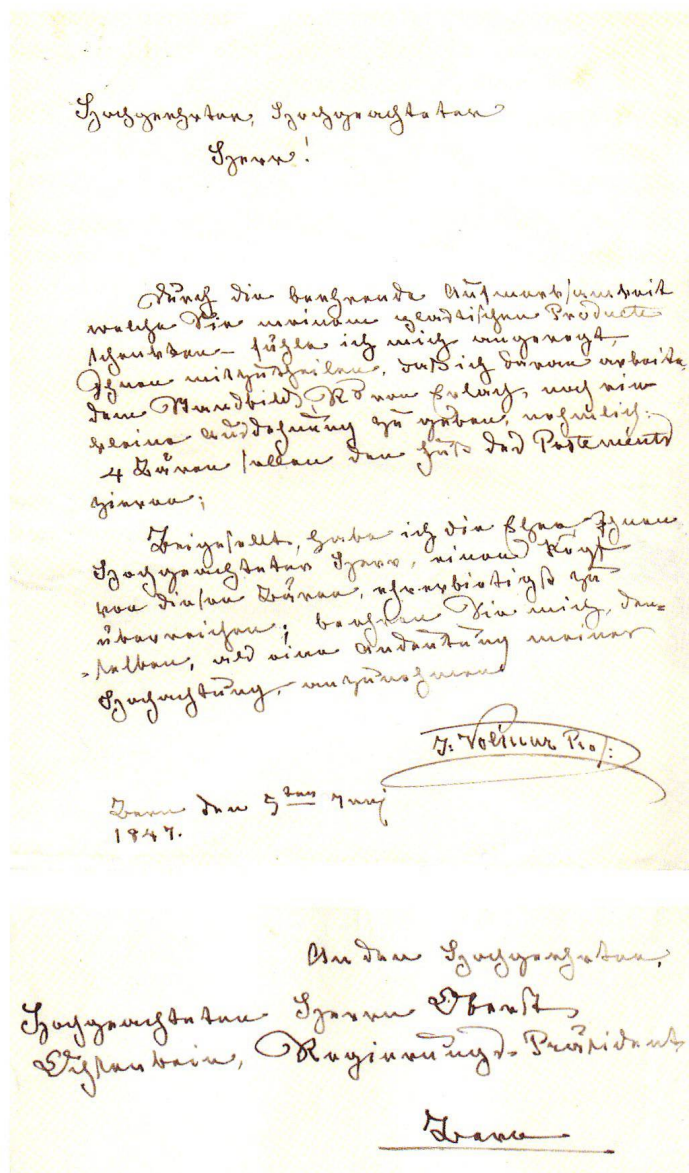 Hochgeehrter, Hochgeachteter
Herr!
Durch die beehrende Aufmerksamkeit
welche Sie meinem plastischen Producte
schenkten – fühle ich mich angeregt,
Ihnen mitzutheilen, daß ich daran arbeite,
dem Standbild, R's von Erlach, noch eine
kleine Ausdehnung zu geben, nehmlich:
4 Bären sollen den Fuß des Postements
zieren;
Beigesellt, habe ich die Ehre, Ihnen
Hochgeachteter Herr, einen Kopf
von diesen Bären, ehrerbietigst zu
überreichen; beehren Sie mich, den=
=selben, als eine Andeutung meiner
Hochachtung, anzunehmen
J. Volmar Prof:
Bern den 5ten Juni
1847.
An den Hochgeehrten,
Hochgeachteten Herrn Oberst
Ochsenbein, Regierungs-Präsident
Bern